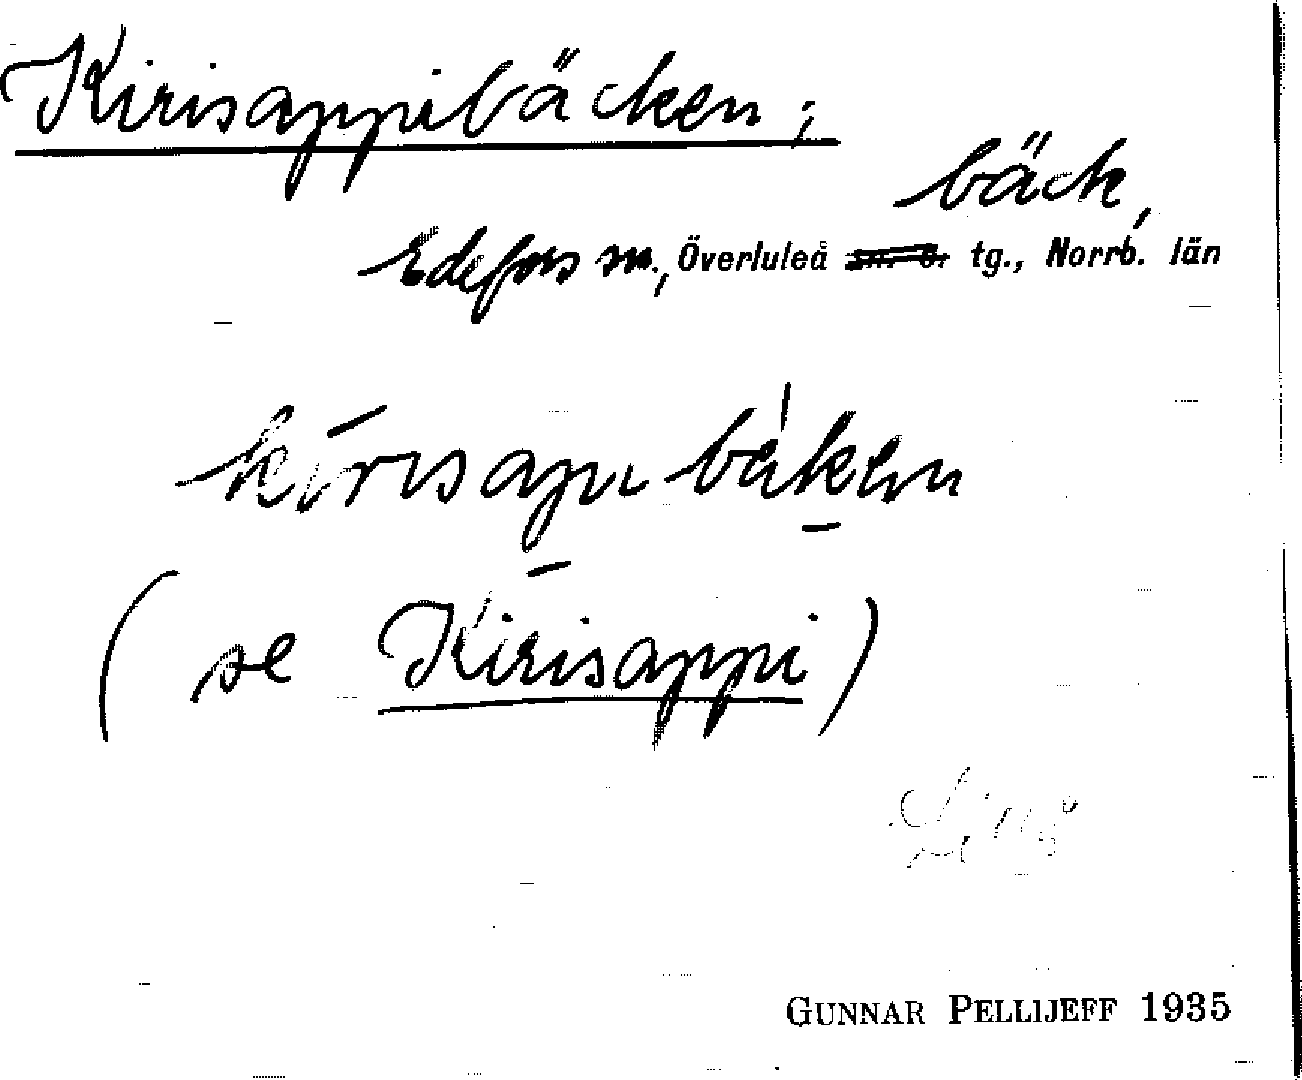 Kirisappibäcken;
bäck,
Edefors sn., Överluleå sn. o. tg., Norrb. län
kírisapi bäken
(se Kirisappi)
GUNNAR PELLIJEFF 1935